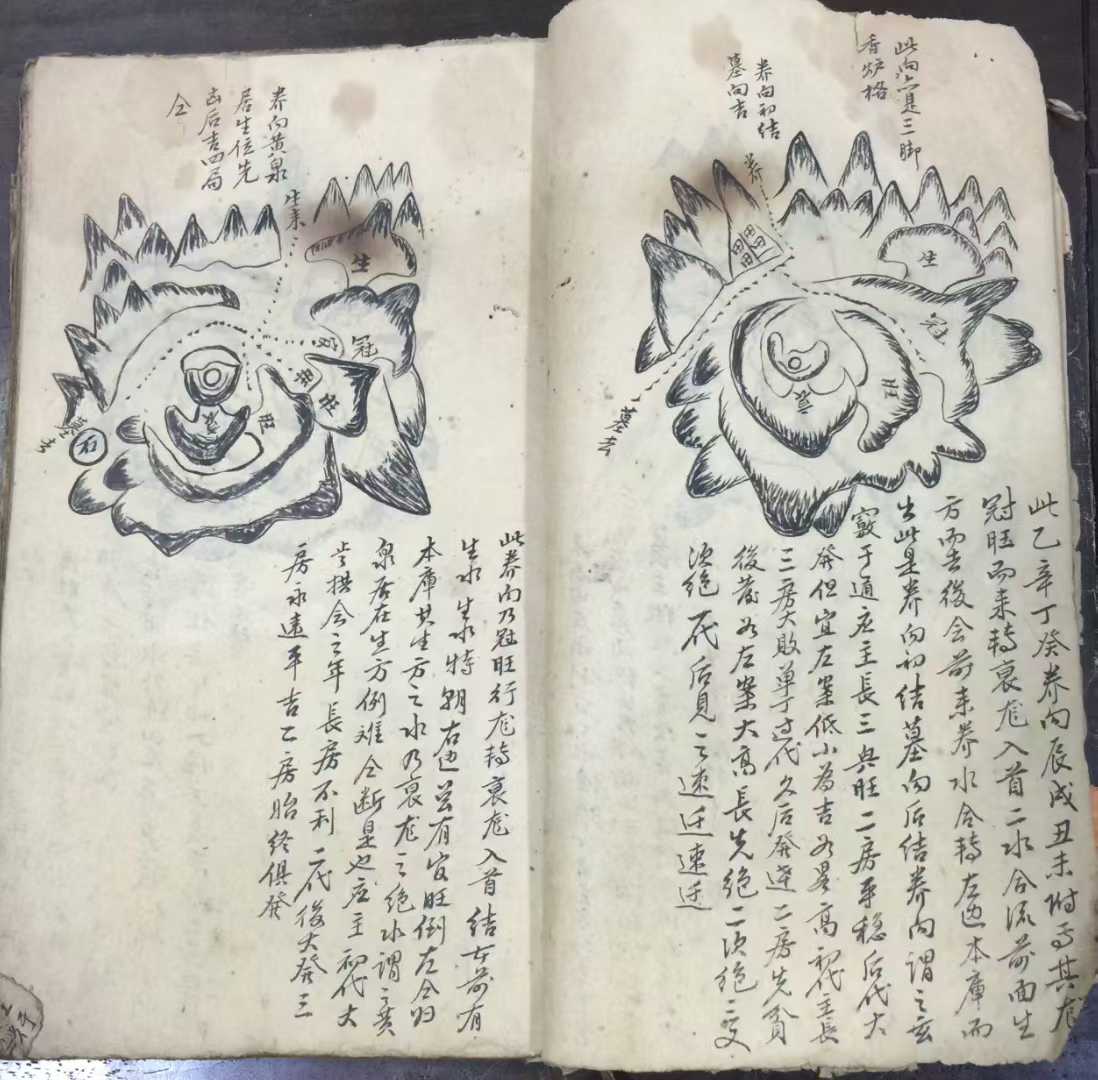 此向亦是三脚
香炉格
养向初结
墓向吉
养
生
冠
旺
衰
墓去
此乙辛丁癸养向辰戌丑未附焉其龙
冠旺而来转衰龙入首二水合流前面生
方而去后会前来养水合转左边本库而
出此是养向初结墓向后结养向谓之玄
窍于通应主长三兴旺二房平稳后代大
发但宜左案低小为吉若是高初代主长
三房大败单丁过代久后发达二房先贫
後发若左案大高长先绝二次绝三交
次绝一代后见之速迁速迁
养向黄泉
居生位先
凶后吉四局
仝
生来
生
冠
旺
衰
墓去
石
此养向乃冠旺行龙转衰龙入首结奇前有
生水生水特朝右边並有官旺倒左仝归
本库其生方之水乃衰龙之绝水谓之黄
泉居在生方例难仝断是也应主初代大
步拱会之年长房不利二代後大发三
房永远平吉乙房胎终俱发